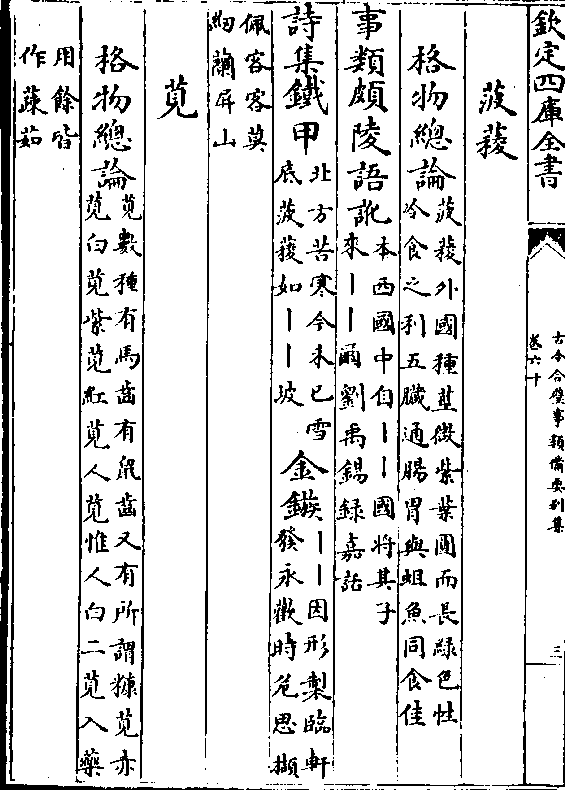 欽定四庫全書
古今合璧事類備要別集
卷六十
三
菠薐
格物總論
菠薐外國種莖微紫葉圓而長綠色性
冷食之利五臟通腸胃與䱇魚同食佳
事類頗陵語訛
本西國中自丨丨國將其子
來丨丨爾劉禹錫録嘉話
詩集鐵甲
北方苦寒今未已雪
底菠薐如丨丨坡
金鏃
丨丨因形製臨軒
發永歎時危思擷
佩客客莫
紉蘭屏山
莧
格物總論
莧數種有馬齒有鼠齒又有所謂糠莧亦
莧白莧紫莧紅莧人莧惟人白二莧入藥
用餘皆
作蔬茹